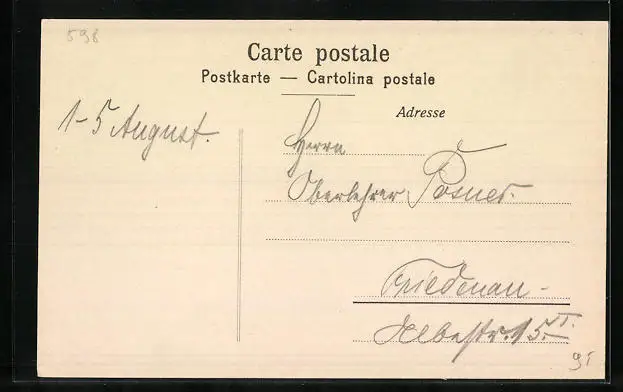 598
Carte postale
Postkarte — Cartolina postale
Adresse
1-5 August.
Herrn
Oberlehrer Posner.
Friedenau-
15. I.